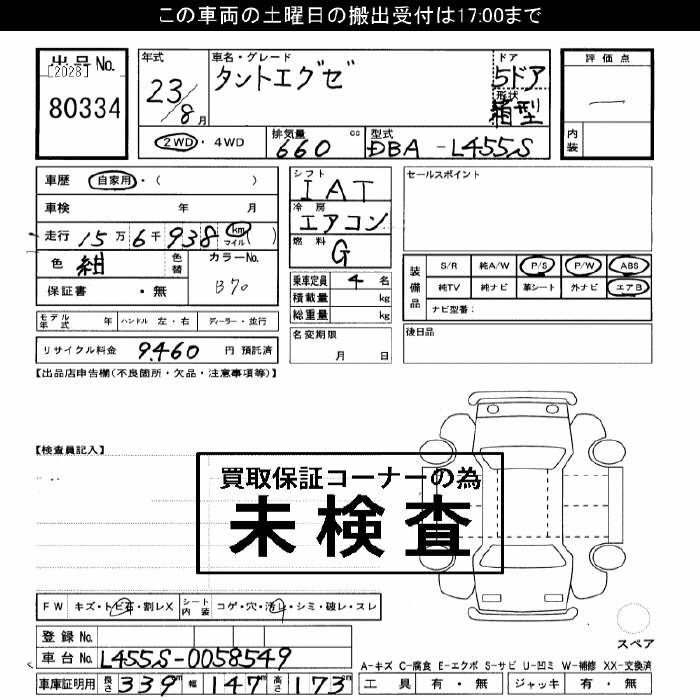 この車両の土曜日の搬出受付は17:00まで
出品No. [2028] 80334
年式 23/8月
車名・グレード タントエグゼ
ドア 5ドア
形状 箱型
評価点 —
内装
2WD・4WD
排気量 660 cc
型式 DBA-L455S
車歴 自家用・( )
車検 年 月
走行 15万6千938 km マイル ( )
色 紺 色替 カラーNo. B70
保証書 ・無
シフト IAT
冷房 エアコン
燃料 G
乗車定員 4 名
積載量 kg
総重量 kg
セールスポイント
装備品 S/R 純A/W P/S P/W ABS
純TV 純ナビ 革シート 外ナビ エアB
ナビ型番:
モデル年式 年 ハンドル 左・右 ディーラー・並行
名変期限 月 日
後日品
リサイクル料金 9,460 円 預託済
【出品店申告欄(不良箇所・欠品・注意事項等)】
【検査員記入】
買取保証コーナーの為
未検査
FW キズ・トビ石・割レX シート内装 コゲ・穴・汚レ・シミ・破レ・スレ
登録No.
車台No. L455S-0058549
スペア
A-キズ C-腐食 E-エクボ S-サビ U-凹ミ W-補修 XX-交換済
車庫証明用 長さ 339m 幅 147m 高さ 173cm
工具 有・無 ジャッキ 有・無